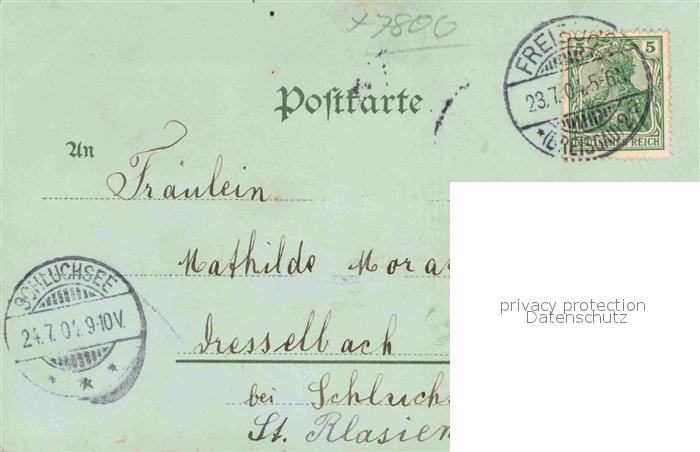 x7800
5 5
FREIBURG
23.7.04. 5-6N.
*(BREISGAU)*
DEUTSCHES REICH
Postkarte
An
Fräulein
Mathilde Mora
Dresselbach
bei Schluchs
St. Blasien
SCHLUCHSEE
24.7.04. 9-10V.
* * *
privacy protection
Datenschutz